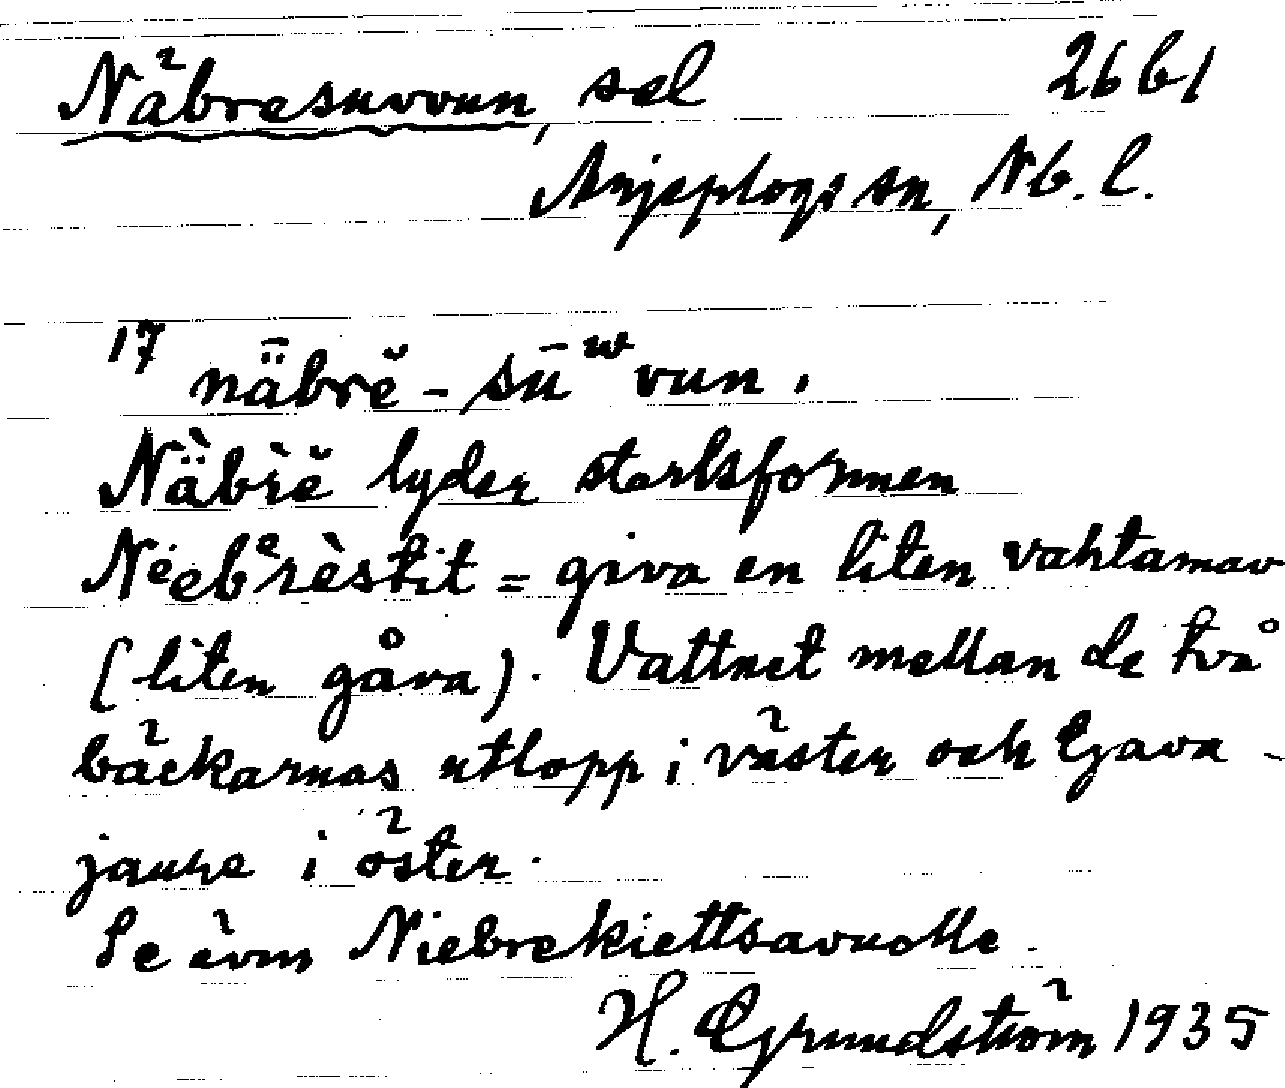 Näbresuvvun, sel 26 b 1
Arjeplogs sn, Nb. l.
17 nǟbrĕ - sū ʷ vun.
Nä̀brĕ̀ lyder starksformen
Neebᵉrèstit = giva en liten vahtamav
(liten gåva). Vattnet mellan de två
bäckarnas utlopp i väster och Gava-
jaure i öster.
Se även Niebrekiettsavuolle.
H. Grundström 1935